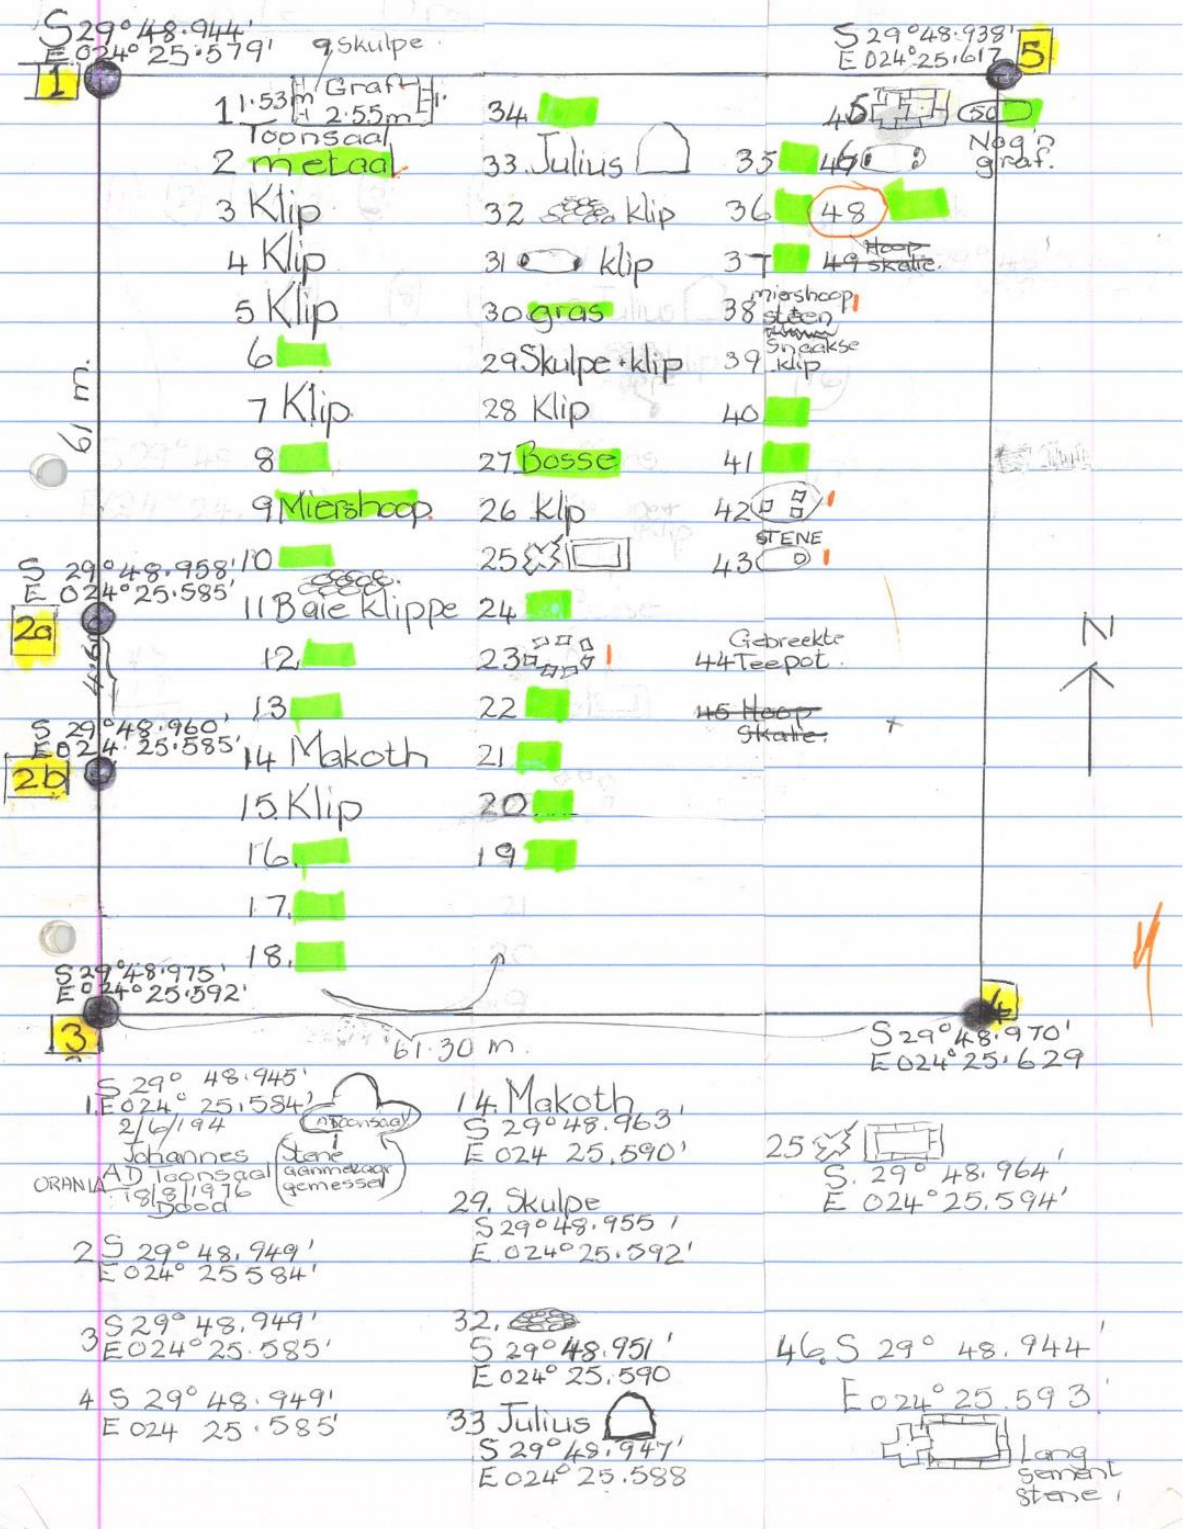 S 29° 48.944'
E 024° 25.579'
1
9 skulpe
S 29° 48.938'
E 024° 25.617
5
1 1.53m Graft 2.55m
Toonsaal
2 metaal
3 Klip
4 Klip
5 Klip
6
7 Klip
8
9 Miershoop
10
11 Baie Klippe
12
13
14 Makoth
15. Klip
16.
17.
18.
34
33. Julius
32 klip
31 klip
30 gras
29 Skulpe + klip
28 Klip
27 Bosse
26 Klip
25
24
23
22
21
20
19
35
36
37
38 miershoop
steen
39 Snaakse
klip
40
41
42
STENE
43
Gebreekte
44 Teepot.
45 Hoop
Skalie.
46
48
49 Hoop
skalie.
50
Nog 'n
graf.
61 m.
S 29° 48.958'
E 024° 25.585'
2a
4.60
S 29° 48.960'
E 024° 25.585'
2b
N
S 29° 48.975'
E 024° 25.592'
3
61.30 m.
4
S 29° 48.970'
E 024° 25.629
1. S 29° 48.945'
E 024° 25.584'
2/6/194
Johannes
AD Toonsaal
ORANIA
18/8/1976
Dood
AD Toonsaal
Stene
aanmekaar
gemessel
2 S 29° 48.949'
E 024° 25584'
3 S 29° 48.949'
E 024° 25.585'
4 S 29° 48.949'
E 024 25.585'
14. Makoth
S 29° 48.963'
E 024 25.590'
29. Skulpe
S 29° 48.955'
E. 024° 25.592'
32.
S 29° 48.951'
E 024° 25.590
33 Julius
S 29° 48.947'
E 024° 25.588
25
S. 29° 48.964'
E 024° 25.594'
46. S 29° 48.944'
E 024° 25.593'
Lang
sement
stene